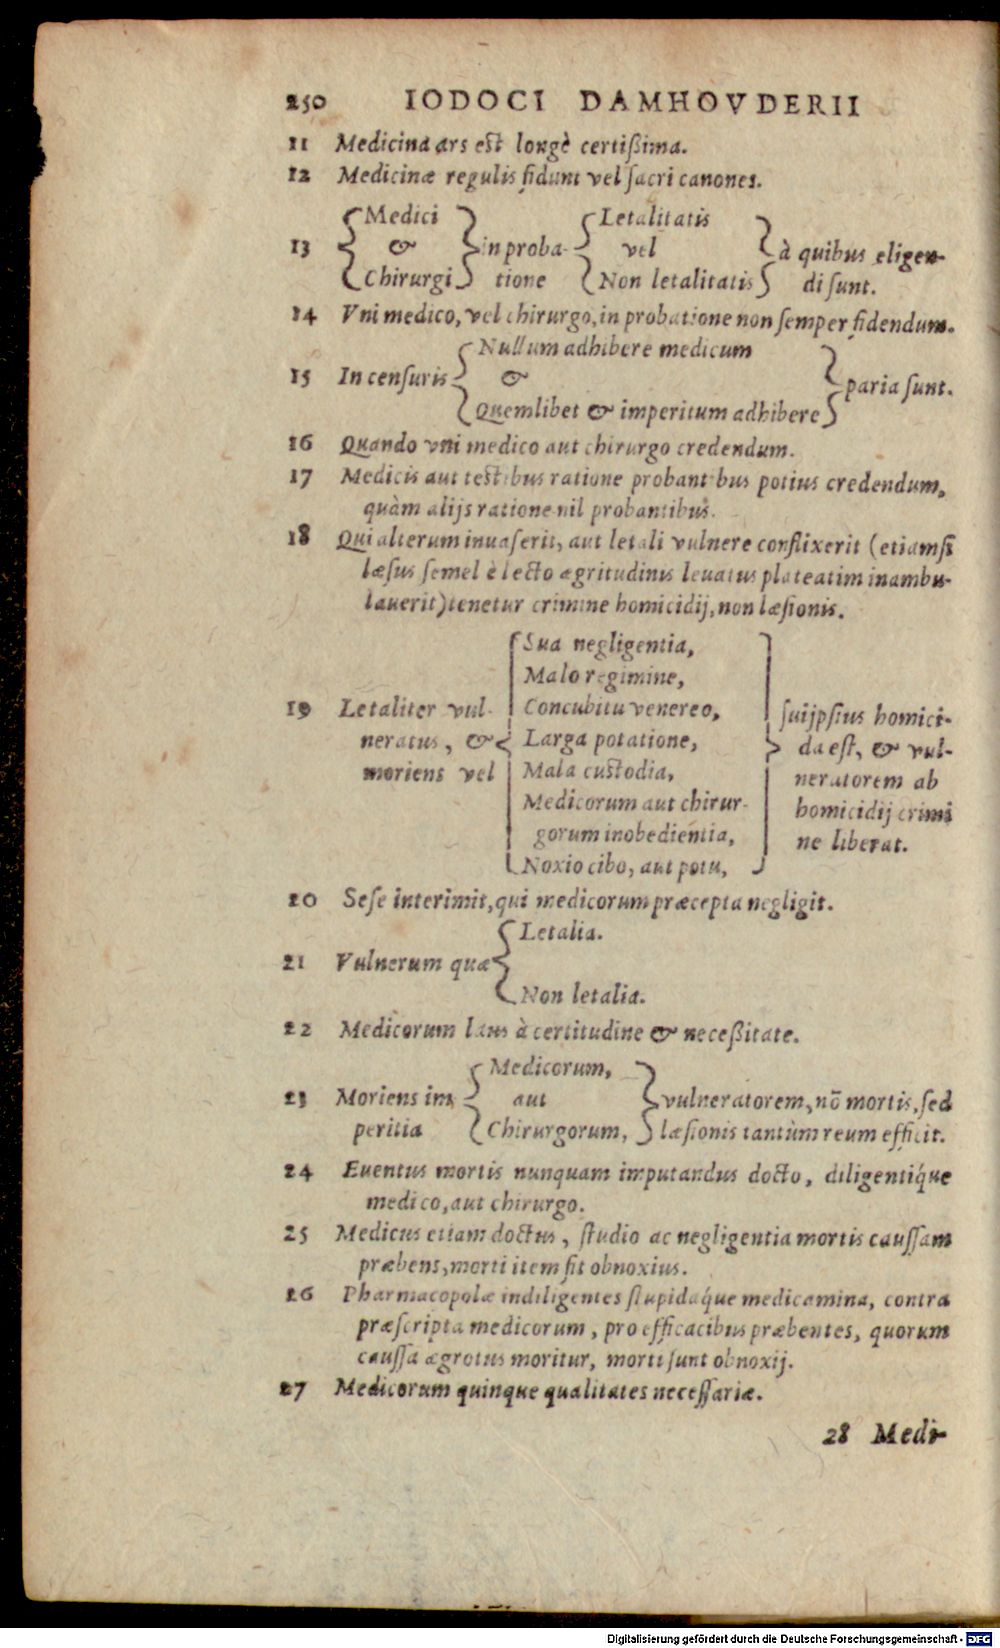 250 IODOCI DAMHOVDERII
11 Medicina ars est longè certißima.
12 Medicinæ regulis fidunt vel sacri canones.
Medici Letalitatis
13 & in proba- vel à quibus eligen-
Chirurgi tione Non letalitatis di sunt.
14 Vni medico, vel chirurgo, in probatione non semper fidendum.
Nullum adhibere medicum
15 In censuris & paria sunt.
Quemlibet & imperitum adhibere
16 Quando vni medico aut chirurgo credendum.
17 Medicis aut testibus ratione probantibus potius credendum,
quàm alijs ratione nil probantibus.
18 Qui alterum inuaserit, aut letali vulnere conflixerit (etiamsi
læsus semel è lecto ægritudinis leuatus plateatim inambu-
lauerit) tenetur crimine homicidij, non læsionis.
Sua negligentia,
Malo regimine,
19 Letaliter vul- Concubitu venereo, suijpsius homici-
neratus, & Larga potatione, da est, & vul-
moriens vel Mala custodia, neratorem ab
Medicorum aut chirur- homicidij crimi
gorum inobedientia, ne liberat.
Noxio cibo, aut potu,
20 Sese interimit, qui medicorum præcepta negligit.
Letalia.
21 Vulnerum quæ
Non letalia.
22 Medicorum laus à certitudine & neceßitate.
Medicorum,
23 Moriens im aut vulneratorem, nō mortis, sed
peritia Chirurgorum, læsionis tantùm reum efficit.
24 Euentus mortis nunquam imputandus docto, diligentíque
medico, aut chirurgo.
25 Medicus etiam doctus, studio ac negligentia mortis caussam
præbens, morti item fit obnoxius.
26 Pharmacopolæ indiligentes stupidáque medicamina, contra
præscripta medicorum, pro efficacibus præbentes, quorum
caussa ægrotus moritur, morti sunt obnoxij.
27 Medicorum quinque qualitates necessariæ.
28 Medi-
Digitalisierung gefördert durch die Deutsche Forschungsgemeinschaft - DFG